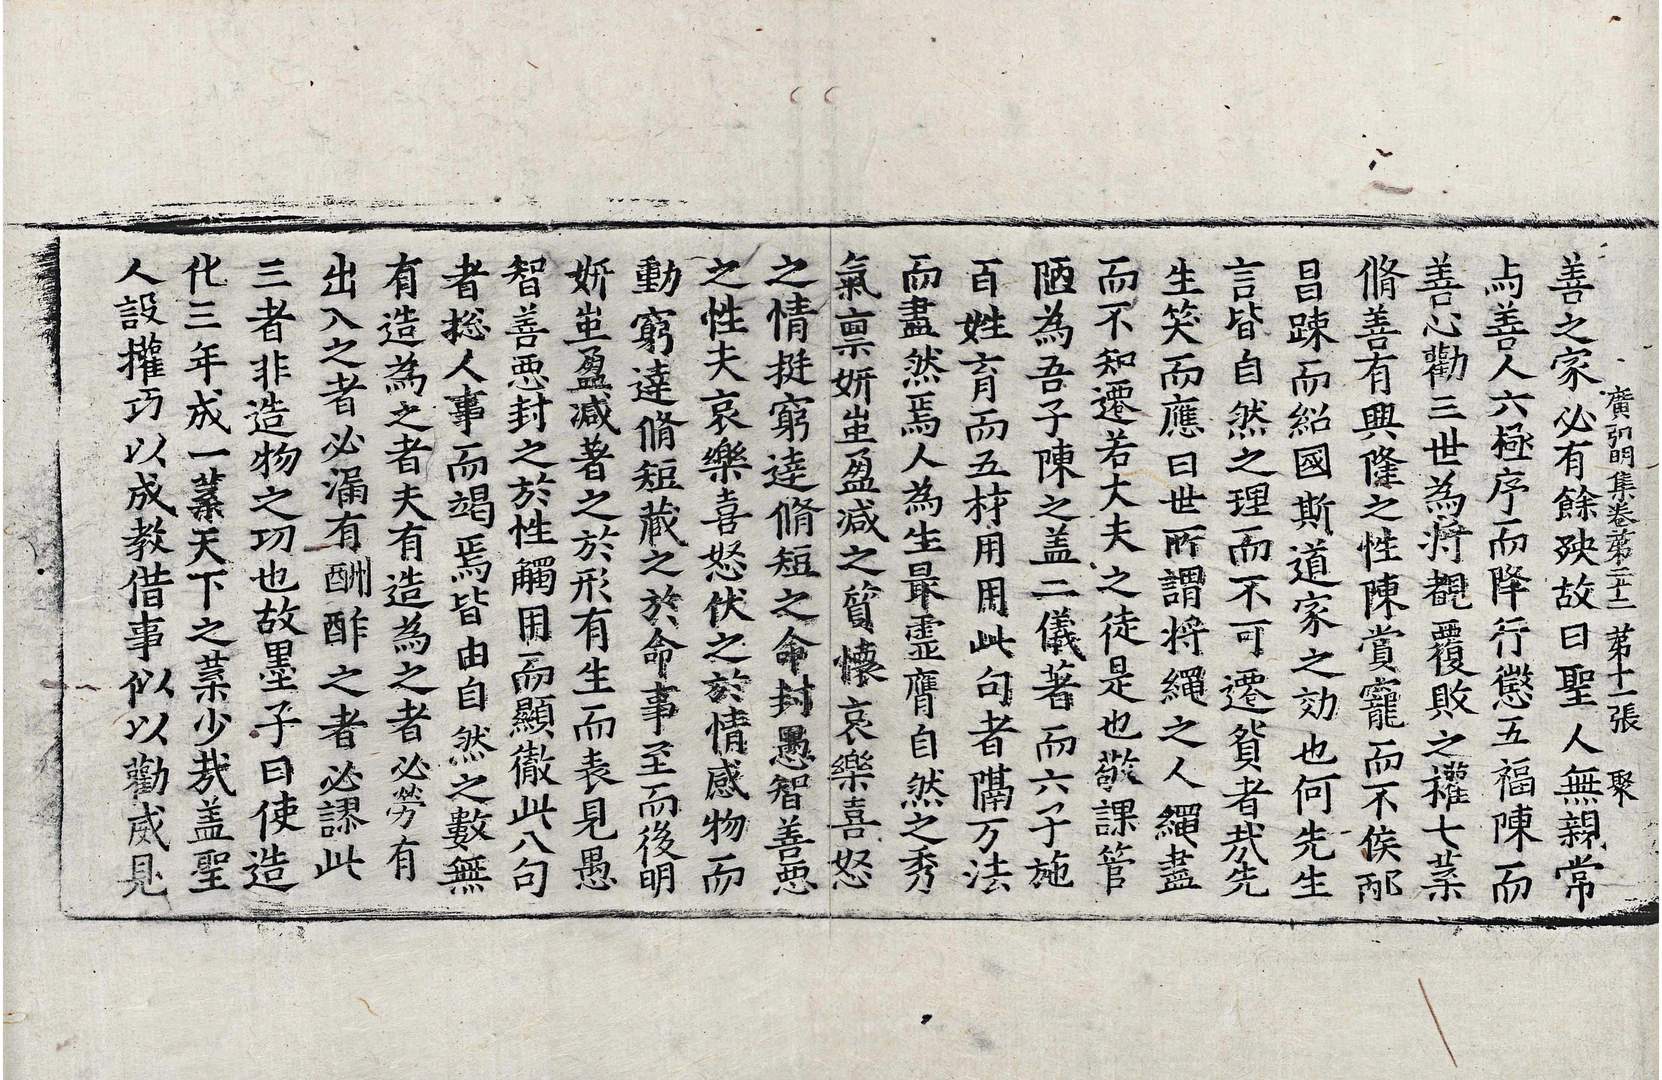 廣弘明集卷第二十二 第十一張 聚
善之家必有餘殃故曰聖人無親常
与善人六極序而降行懲五福陳而
善心勸三世為將覩覆敗之權七葉
脩善有興隆之性陳賞寵而不侯邴
昌踈而紹國斯道家之効也何先生
言皆自然之理而不可遷貿者㢤先
生笑而應曰世所謂將繩之人繩盡
而不知遷若大夫之徒是也敬課管
陋為吾子陳之盖二儀著而六子施
百姓育而五材用用此句者隔万法
而盡然焉人為生最霊膺自然之秀
氣稟妍蚩盈减之質懷哀樂喜怒
之情挺窮逹脩短之命封愚智善惡
之性夫哀樂喜怒伏之於情感物而
動窮逹脩短藏之於命事至而後明
妍蚩盈减著之於形有生而表見愚
智善惡封之於性觸用而顯徹此八句
者捴人事而竭焉皆由自然之數無
有造為之者夫有造為之者必勞有
出入之者必漏有酬酢之者必謬此
三者非造物之功也故墨子曰使造
化三年成一葉天下之葉少㢤盖聖
人設權巧以成教借事似以勸威見